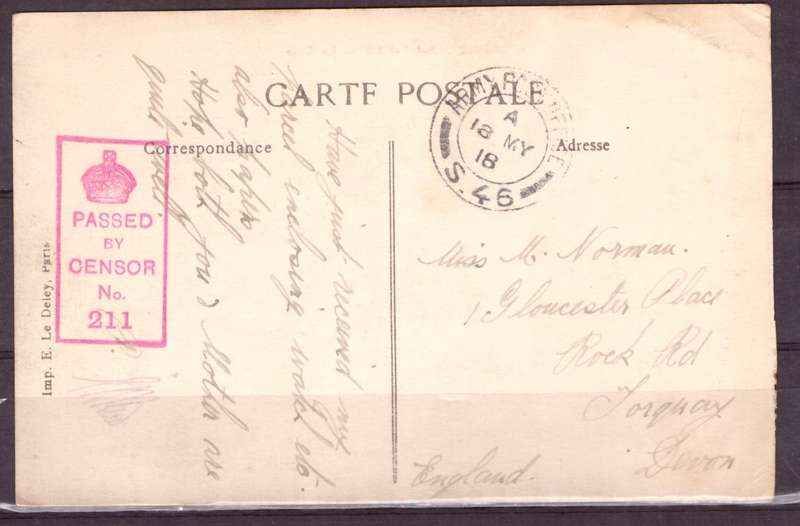 CARTE POSTALE
Correspondance
Adresse
ARMY POST OFFICE
A
18 MY
18
S.46
PASSED
BY
CENSOR
No.
211
Imp. E. Le Deley, Paris
Have just received my
parcel enclosing watch etc.
also papers
Hope both you & Mother are
quite well.
Miss M. Norman.
1 Gloucester Place
Rock Rd
Torquay
Devon
England.